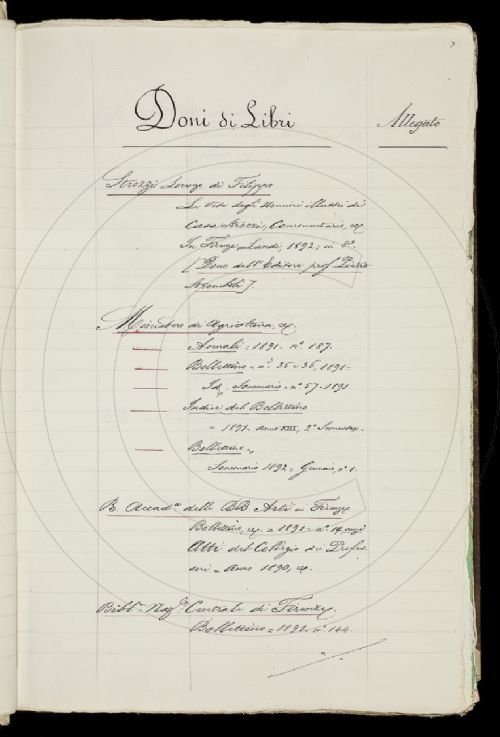 Doni di Libri
Allegato
Strozzi Lorenzo di Filippo
Le Vite degli Uomini Illustri di
Casa Strozzi, Commentario, ec
In Firenze, Landi, 1892; in 8º.
[Dono dell'Editore prof. Pietro
Stromboli].
Ministero di Agricoltura, ec.
Annali = 1891 = nº 187.
Bollettino = nⁱ 35 e 36, 1891 =
Id. Sommario = nº 57 = 1891
Indice del Bollettino
= 1891 = Anno XIII, 2º Semestre.
Bollettino =
Sommario 1892 = Gennaio, nº 1.
R. Accadᵃ delle BB. Arti in Firenze
Bollettino, ec. = 1891 = nº 14
Atti del Collegio dei Profes
sori = Anno 1890, ec.
Bibltᵃ Nazˡᵉ Centrale di Firenze.
Bollettino = 1891 = nº 144.